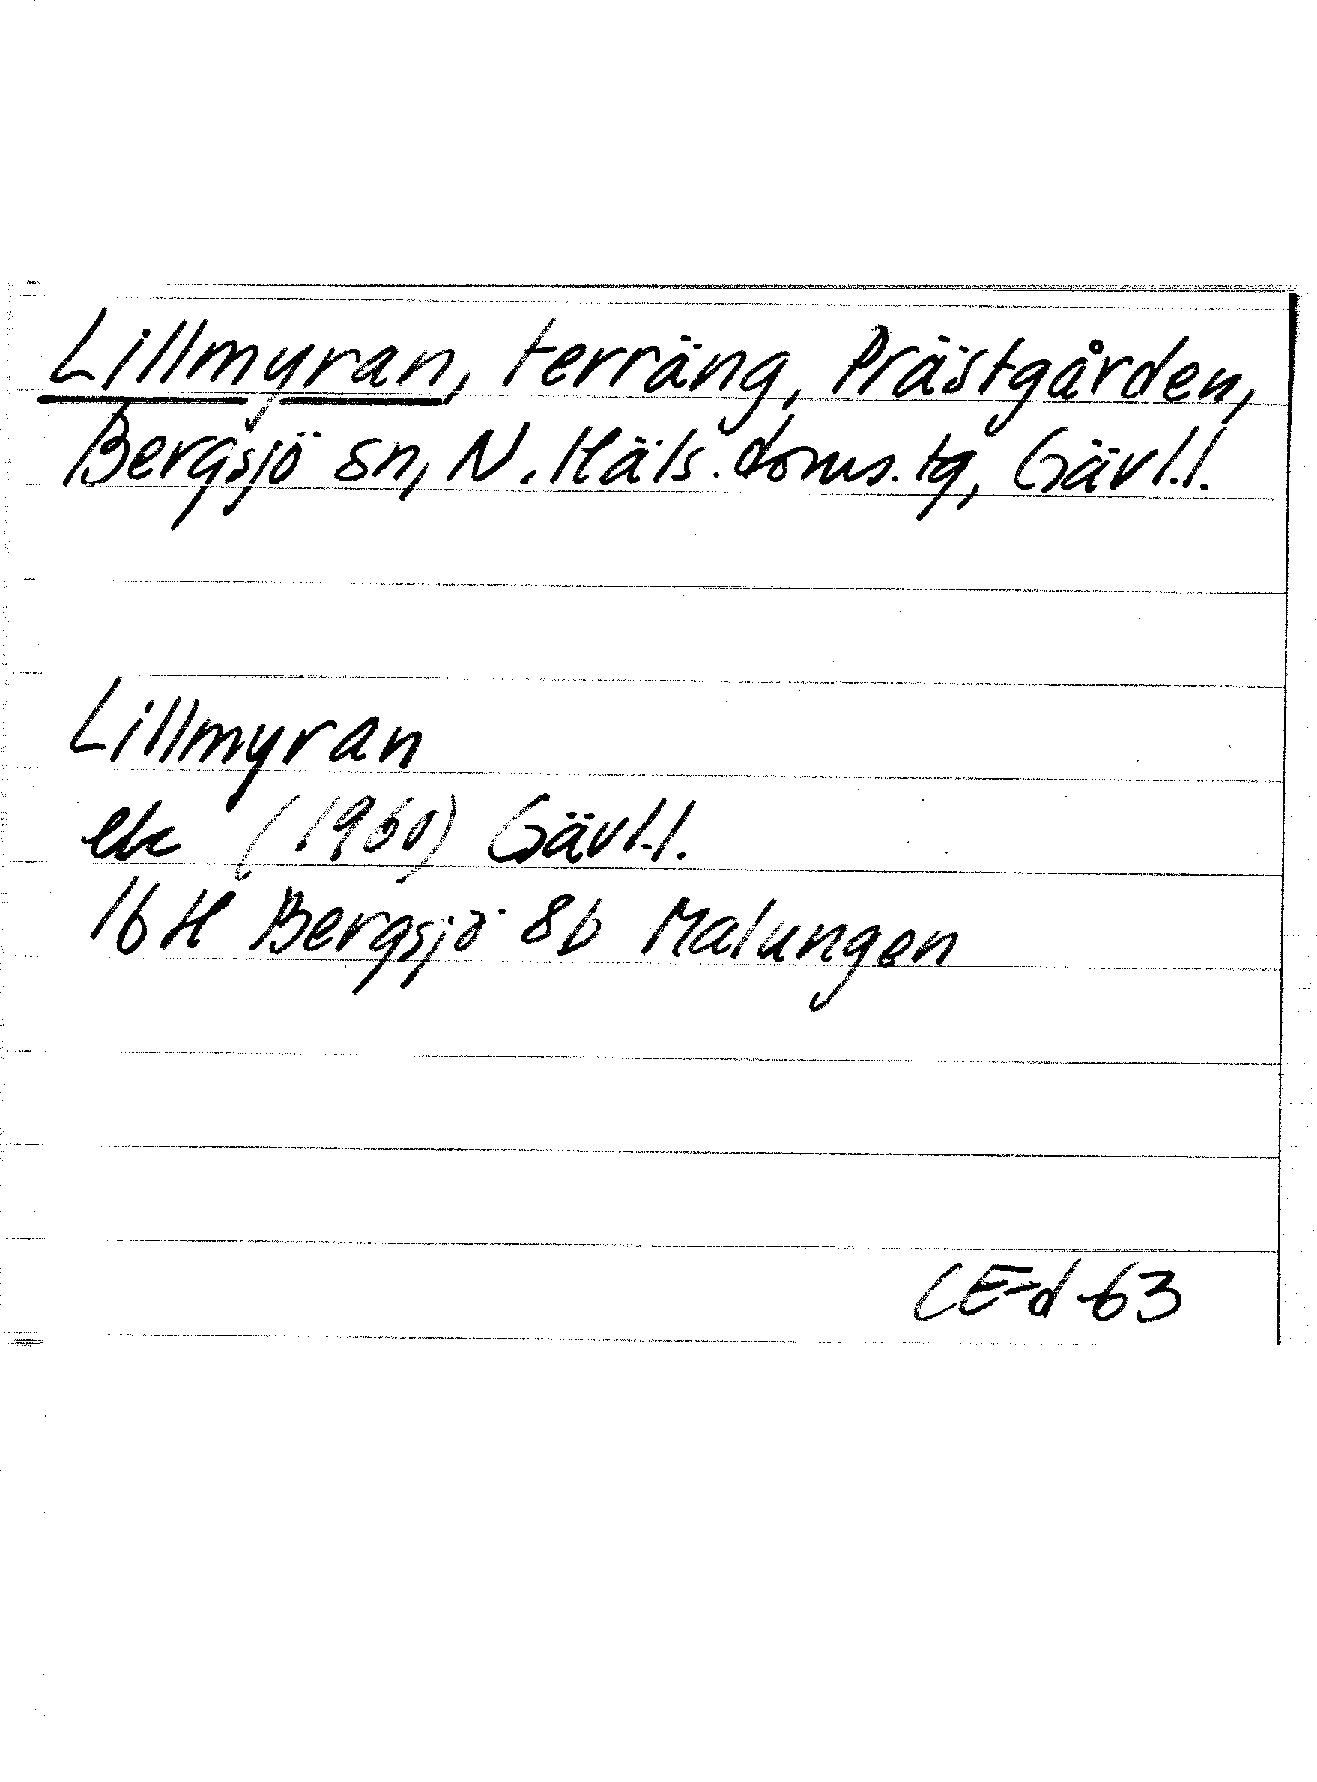 Lillmyran, terräng, Prästgården,
Bergsjö sn, N. Häls. doms. tg, Gävl.l.
Lillmyran
ek (1960) Gävl.l.
16H Bergsjö 8b Malungen
CE-d-63